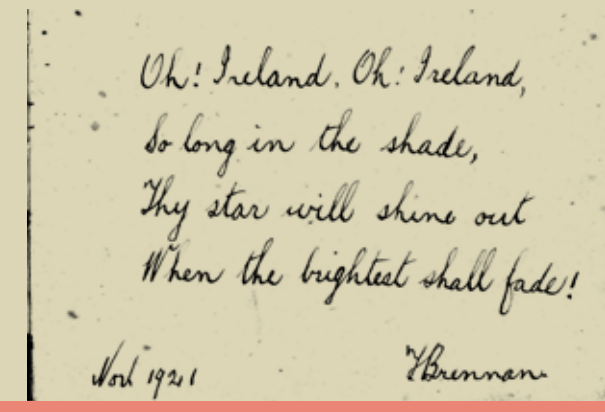 Oh! Ireland. Oh! Ireland,
So long in the shade,
Thy star will shine out
When the brightest shall fade!
Nov 1921 HBrennan